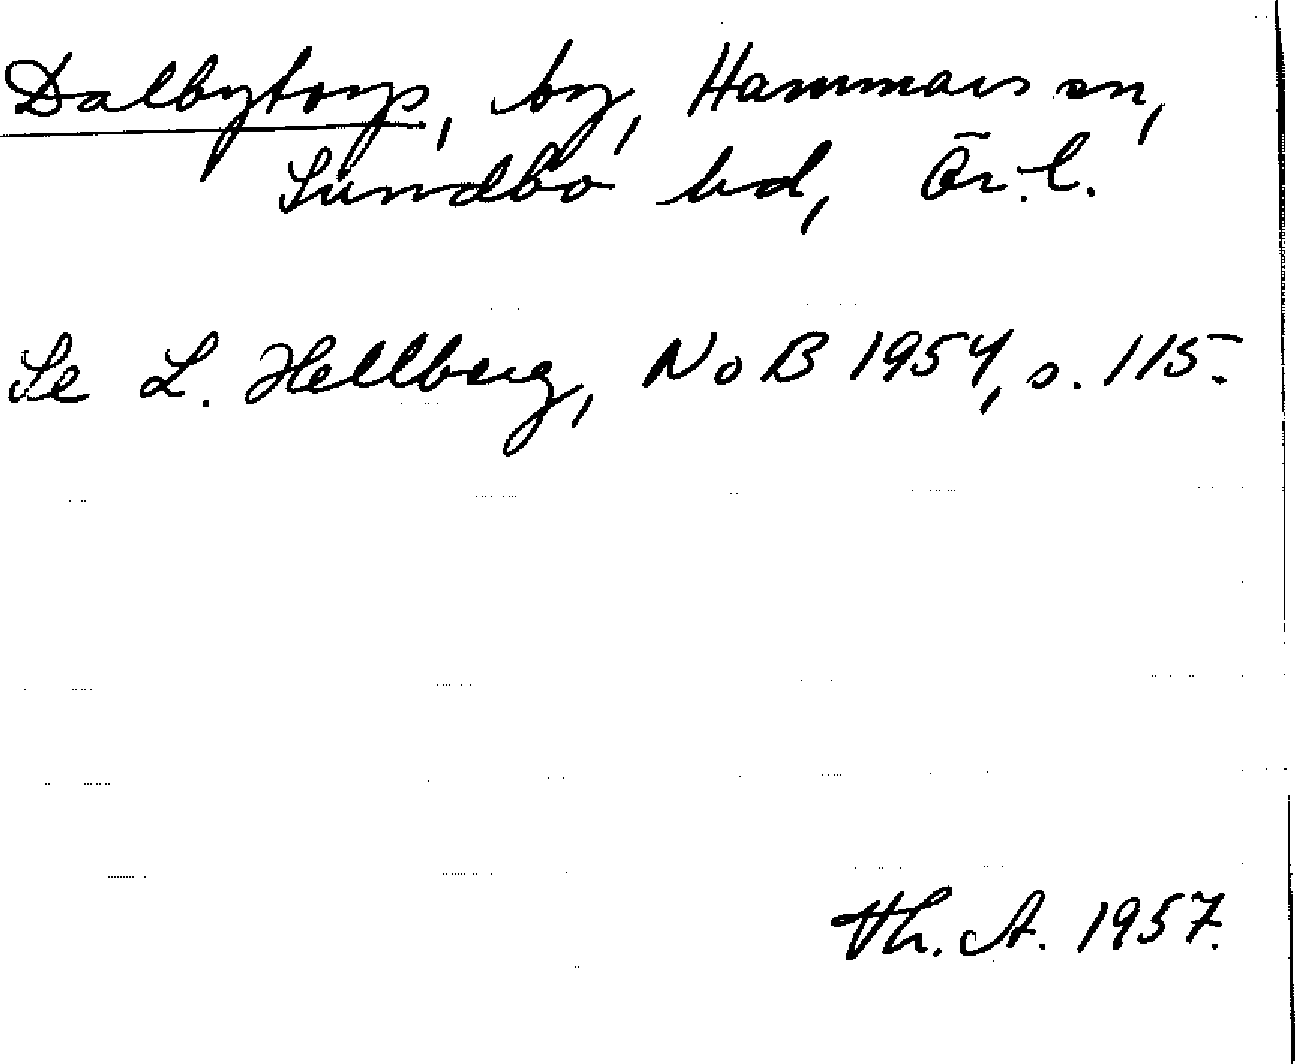 Dalbytorp, by, Hammars sn,
Sundbo hd, Ör. l.
Se L. Hellberg, NoB 1954, s. 115.
Th. A. 1957.